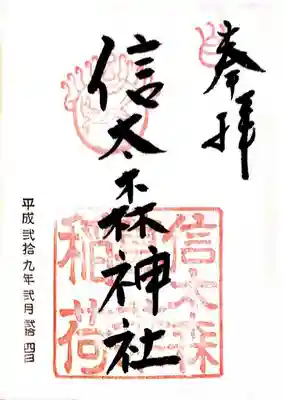 奉拝
信太森神社
信太森
稲荷
平成 弐拾九年 弐月 四日